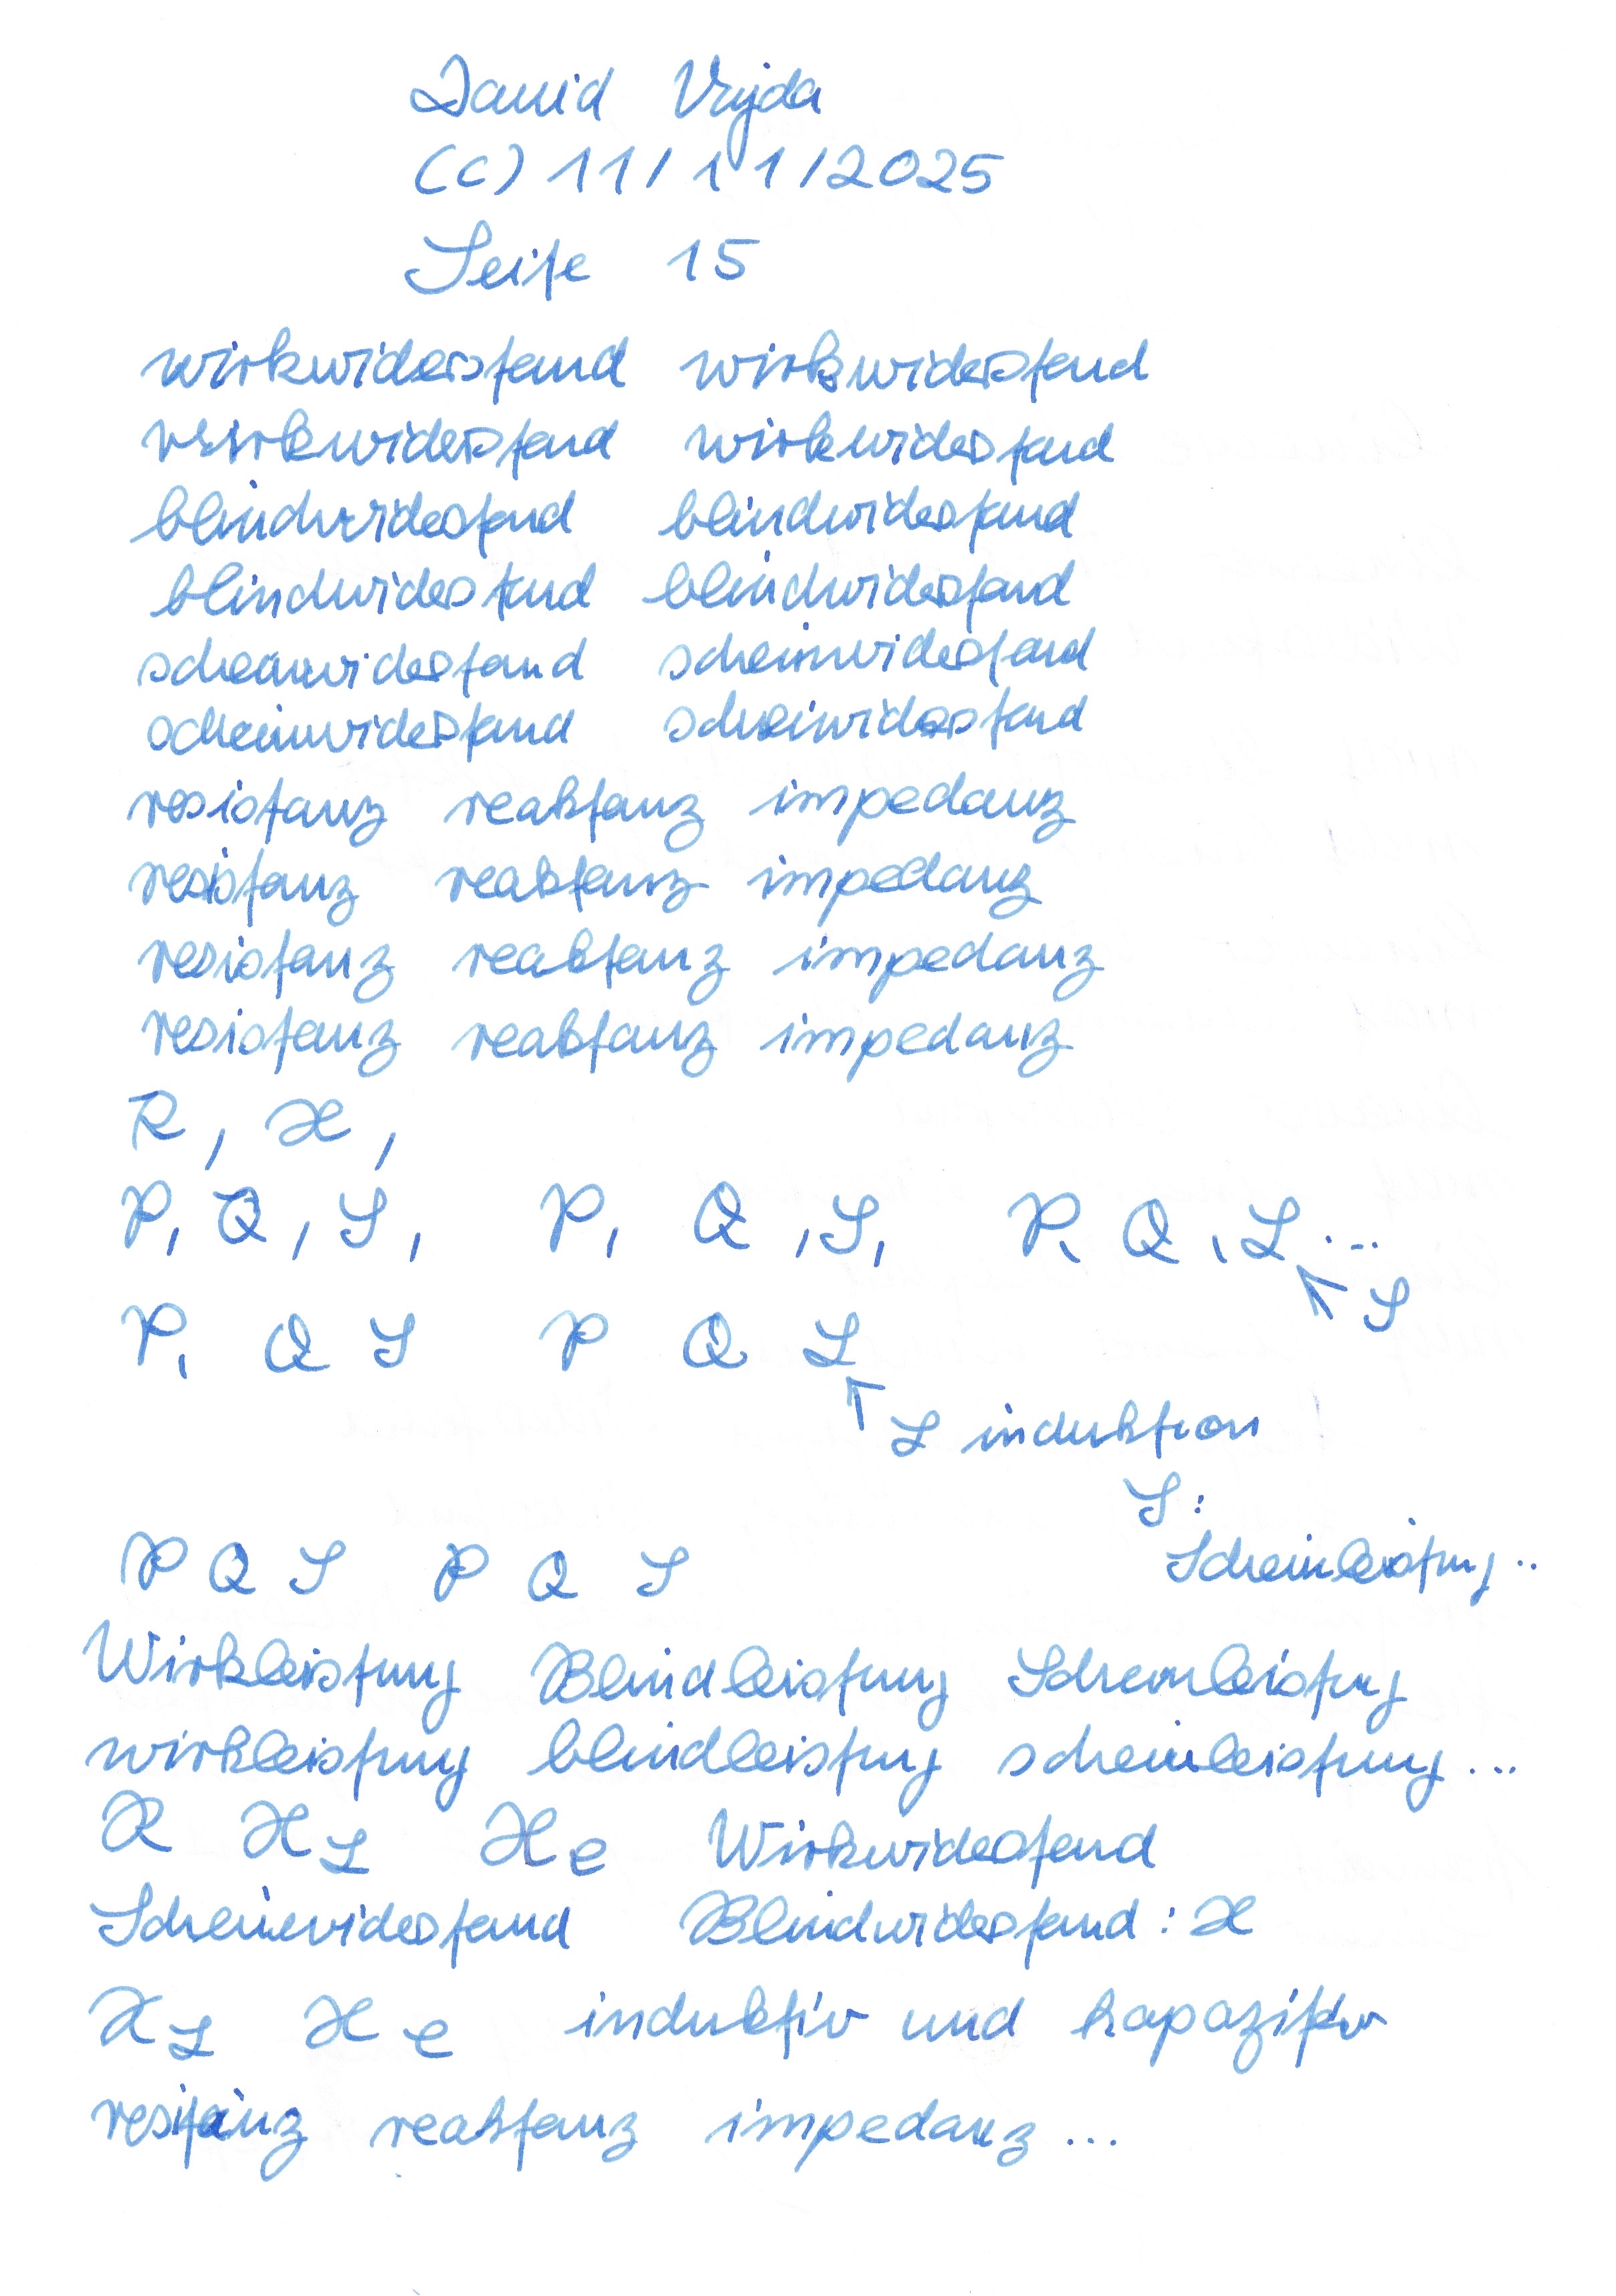 David Vajda
(C) 11/11/2025
Seite 15
wirkwiderstand wirkwiderstand
wirkwiderstand wirkwiderstand
blindwiderstand blindwiderstand
blindwiderstand blindwiderstand
scheinwiderstand scheinwiderstand
scheinwiderstand scheinwiderstand
resistanz reaktanz impedanz
resistanz reaktanz impedanz
resistanz reaktanz impedanz
resistanz reaktanz impedanz
R, X,
P, Q, S, P, Q, S, P, Q, L...
S
P, Q S P Q L
L induktion
S:
Scheinleistung..
P Q S P Q S
Wirkleistung Blindleistung Scheinleistung
wirkleistung blindleistung scheinleistung...
R X_L X_C Wirkwiderstand
Scheinwiderstand Blindwiderstand: X
X_L X_C induktiv und kapazitiv
resistanz reaktanz impedanz...